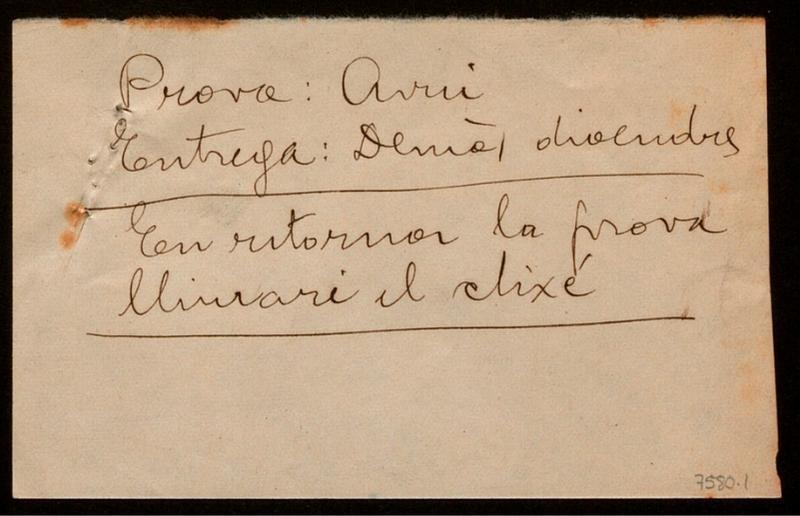 Prova: Avui
Entrega: Demà, divendres
En retornar la prova
lliuraré el clixé
7580.1